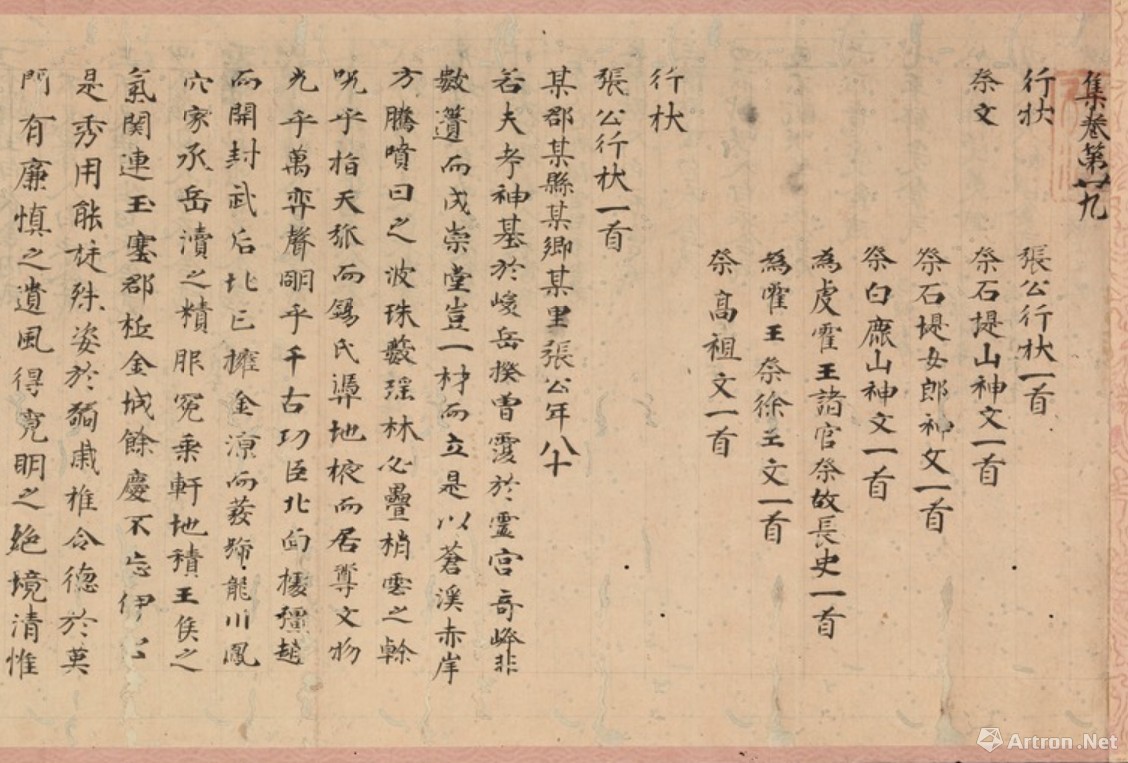 集卷第廿九
行状 張公行状一首
祭文 祭石堤山神文一首
祭石堤女郎神文一首
祭白鹿山神文一首
為虔霍王諸官祭故長史一首
為霍王祭徐王文一首
祭高祖文一首
行状
張公行状一首
某郡某縣某鄉某里張公年八十
若夫考神基於峻岳揆曾覆於霊宮奇峰非
數簣而成崇堂豈一材而立是以蒼溪赤岸
方騰噴日之波珠藪瑶林必疊梢雲之幹
况乎指天弧而錫氏地掖而居尊文物
光乎萬弈聲明乎千古功臣北面援彊趙
而開封武后北已擁金涼而發號龍川鳳
穴家承岳瀆之精服冕乘軒地積王侯之
氣関連玉塞郡金城餘慶不忘伊公
是秀用能旌殊姿於歲稚令德於
門有廉慎之遺風得寬明之絶境清惟
Artron.Net